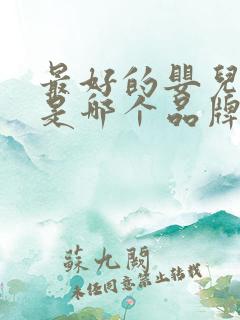 最好的嬰兒
是哪个品牌
蘇九闕
未经同意禁止转载